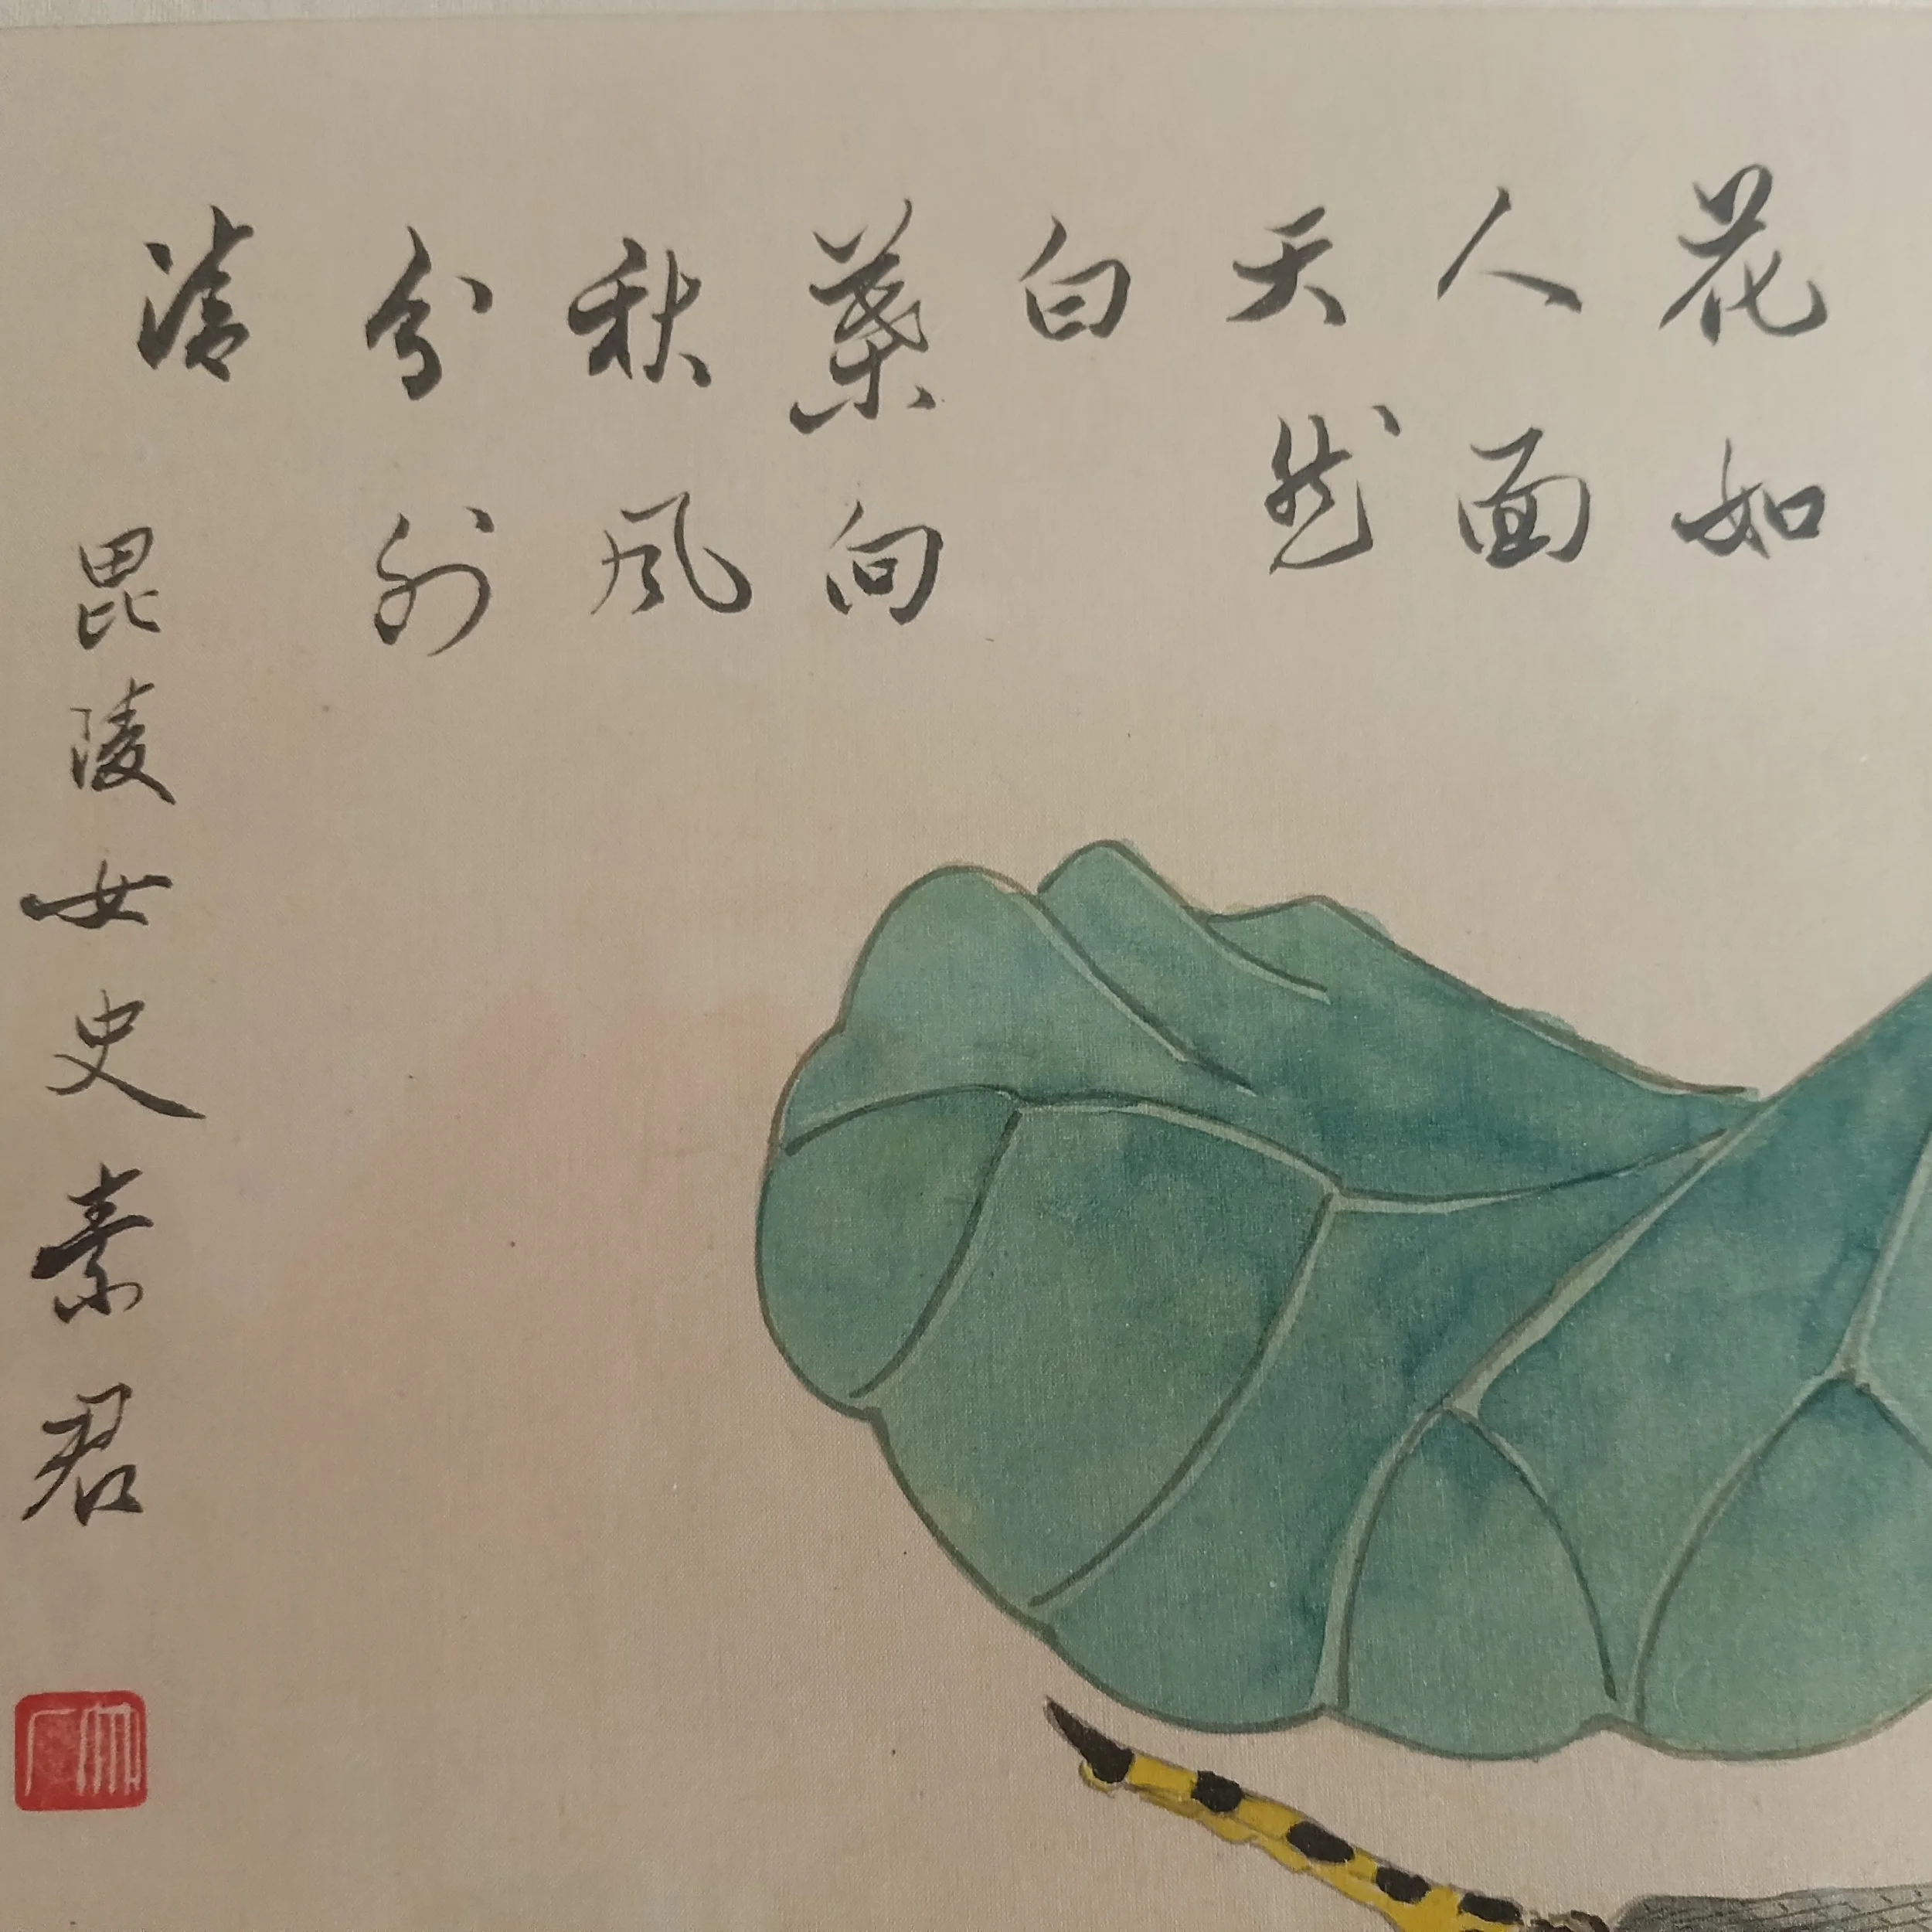 花如
人面
天然
白
葉向
秋風
分外
清
毘陵女史素君